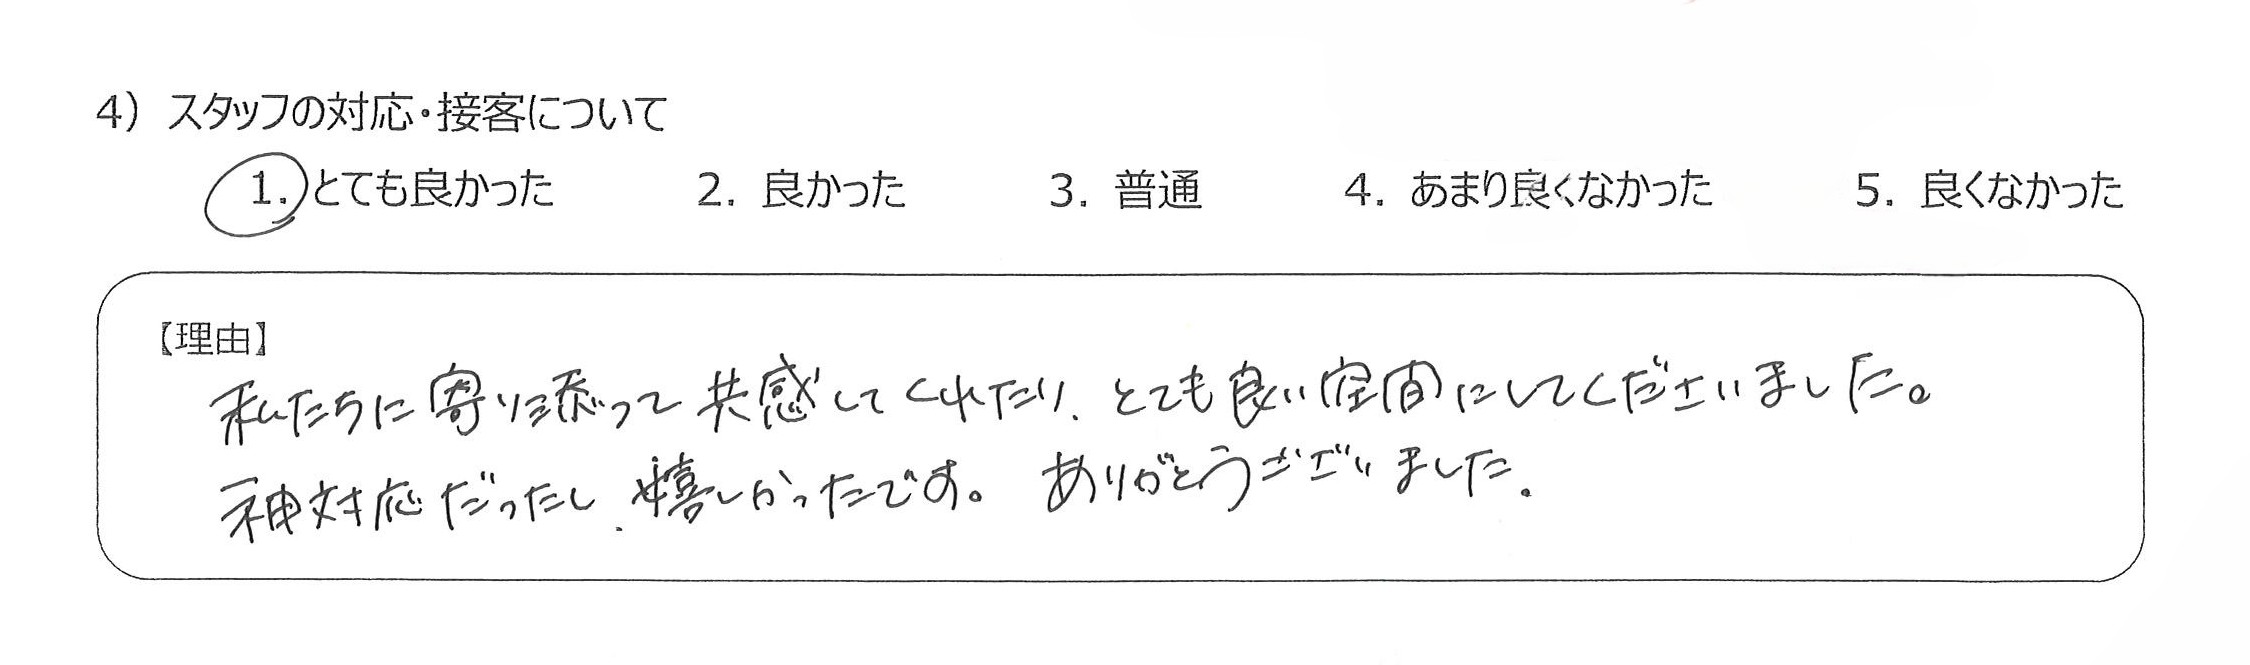 4) スタッフの対応・接客について
1. とても良かった 2. 良かった 3. 普通 4. あまり良くなかった 5. 良くなかった
【理由】
私たちに寄り添って共感してくれたり、とても良い空間にしてくださいました。
神対応だったし、嬉しかったです。ありがとうございました。